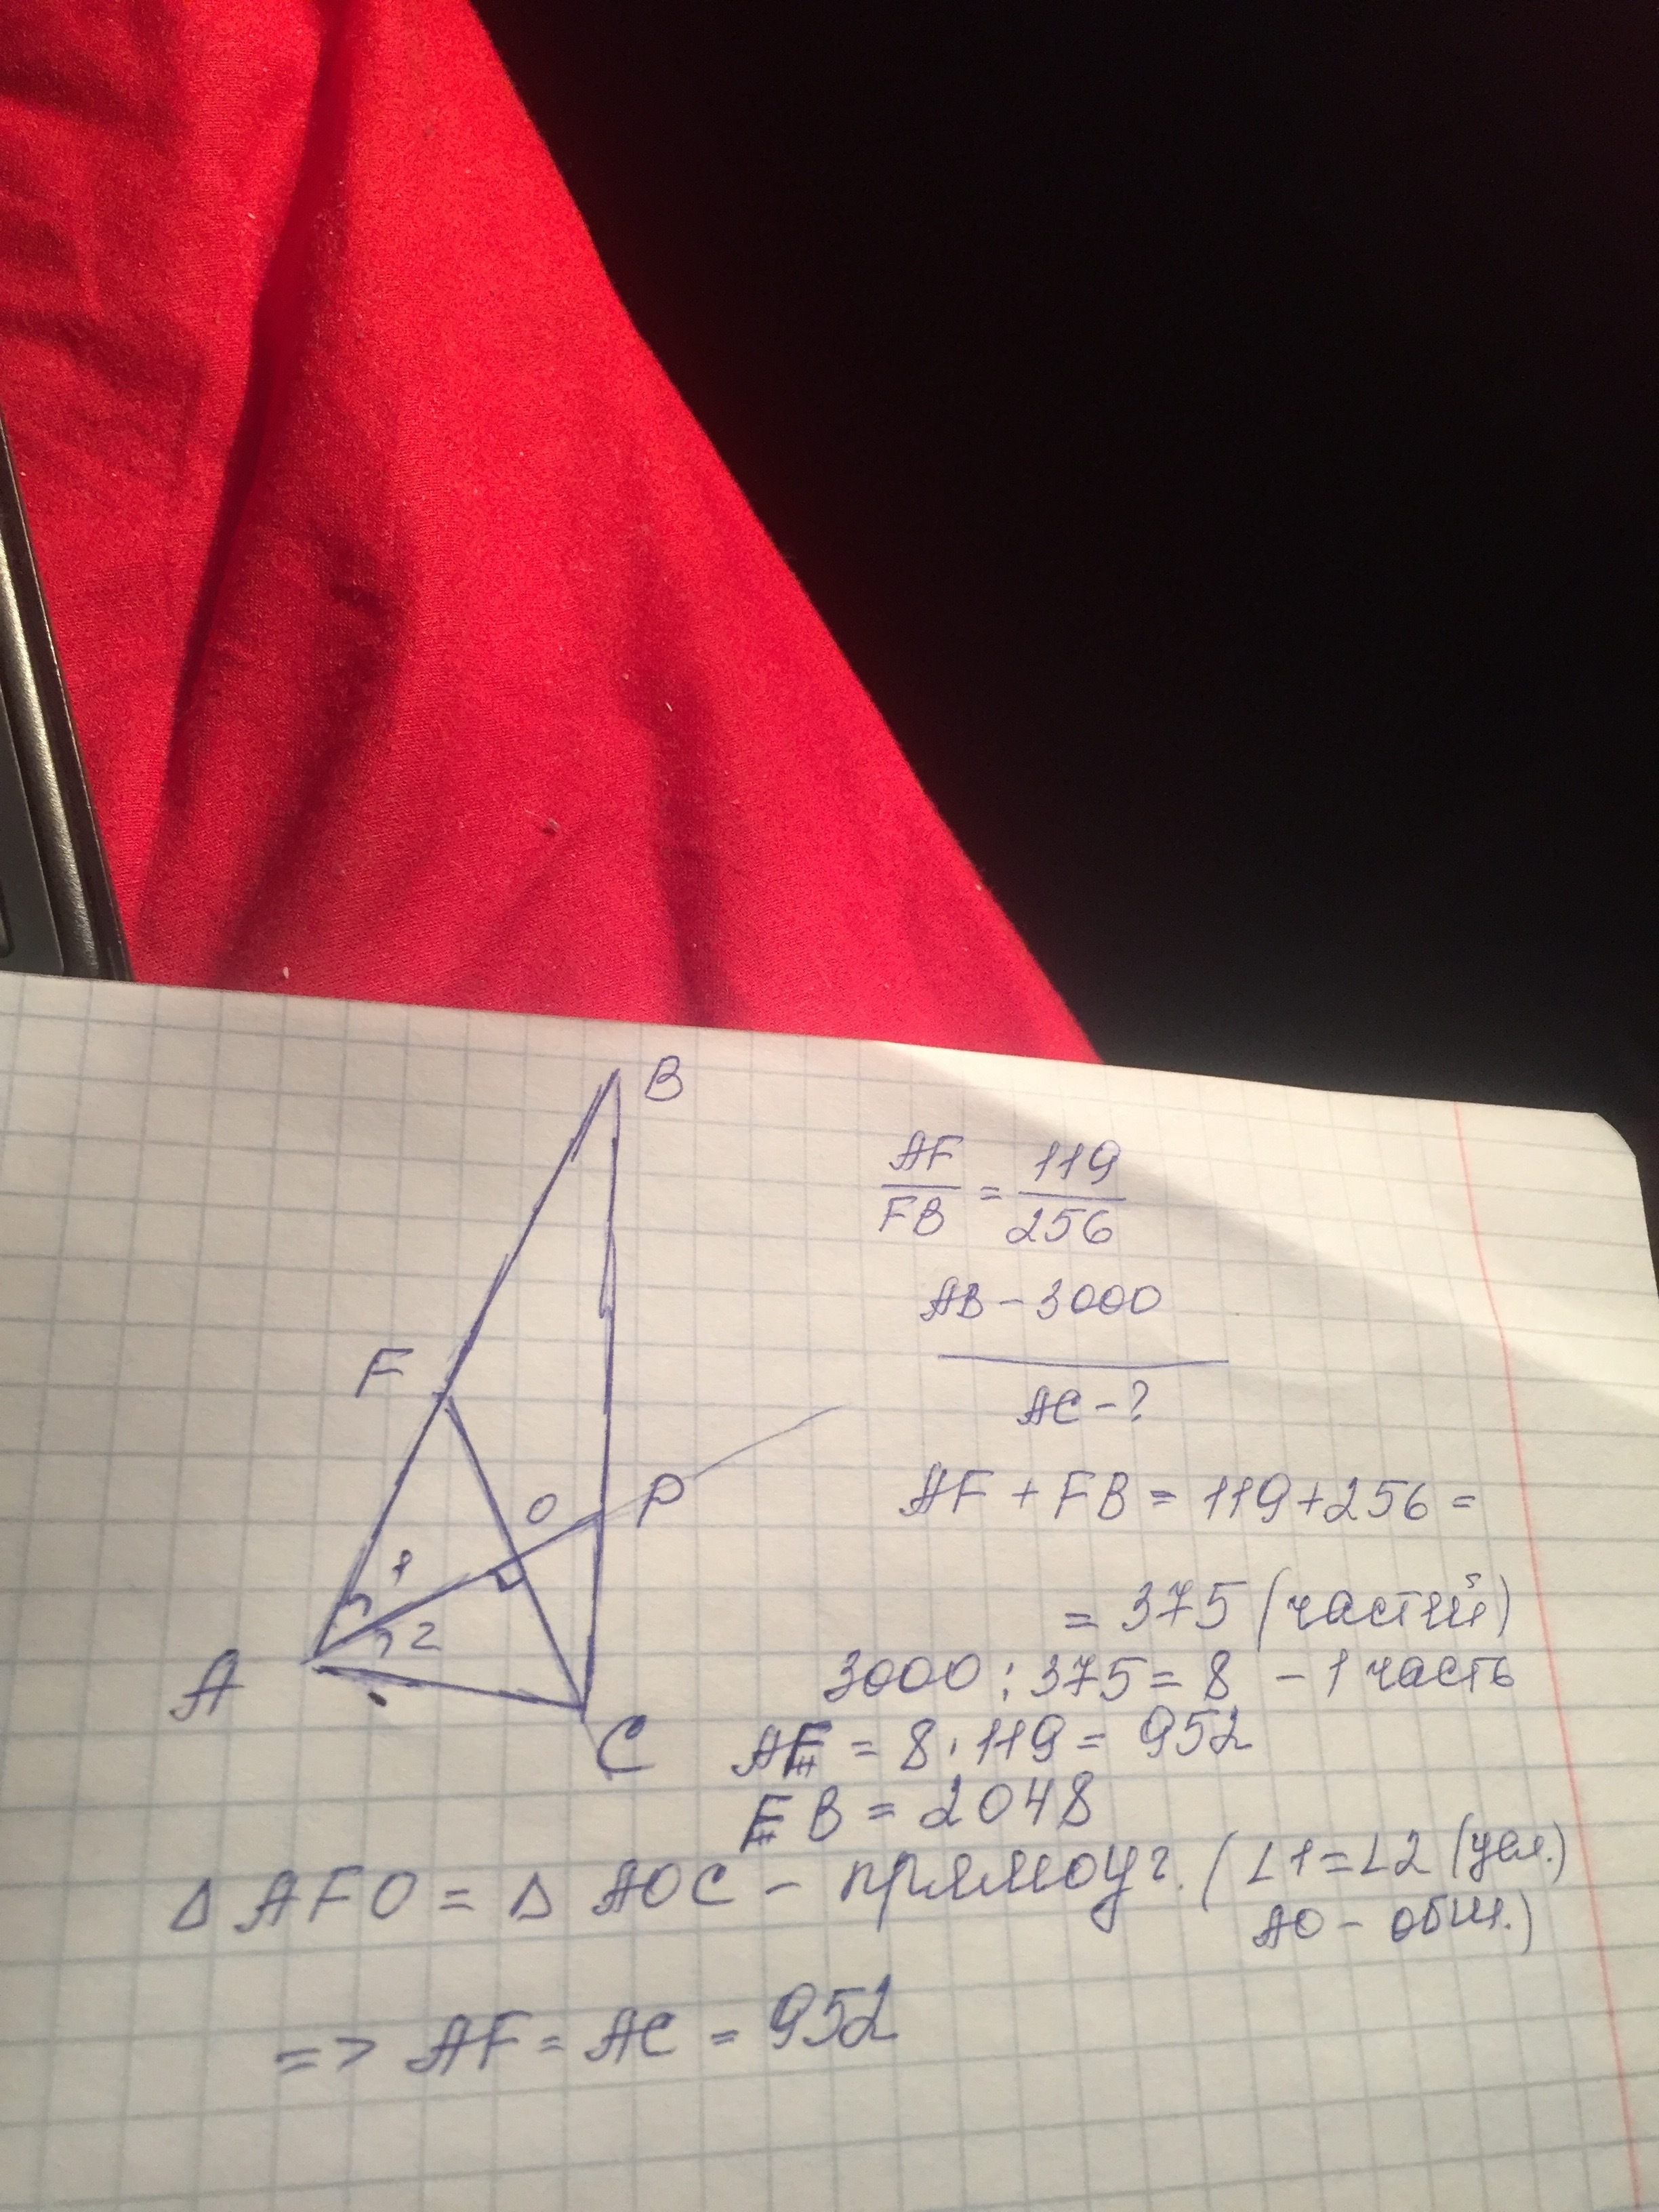 B
F
O
P
1
2
A
C
AF/FB = 119/256
AB - 3000
AC - ?
AF + FB = 119+256 =
= 375 (частий)
3000 : 375 = 8 - 1 часть
AF = 8 · 119 = 952
FB = 2048
Δ AFO = Δ AOC - прямоуг. (∠1=∠2 (усл.)
AO - общ.)
=> AF = AC = 952